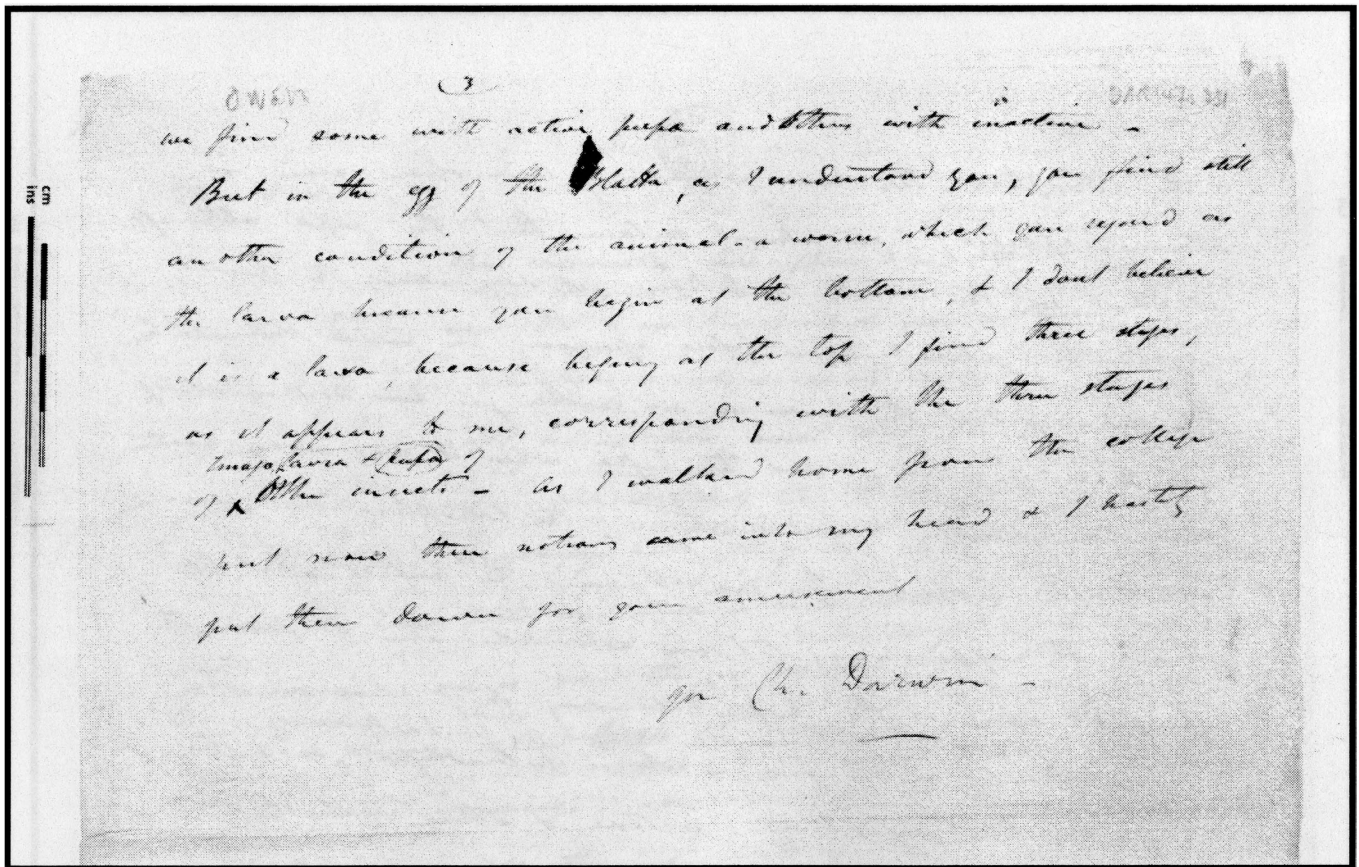 3
we find some with active pupa and others with inactive –
But in the egg of the Blatta, as I understood you, you find still
another condition of the animal – a worm, which you regard as
the larva because you begin at the bottom, & I dont believe
it is a larva, because begining at the top I find three steps,
as it appears to me, corresponding with the three stages
Imago larva & pupa of
of other insects – As I walked home from the college
last these notions came into my head & I hastily
put them down for your amusement
Ch. Darwin –
cm
ins